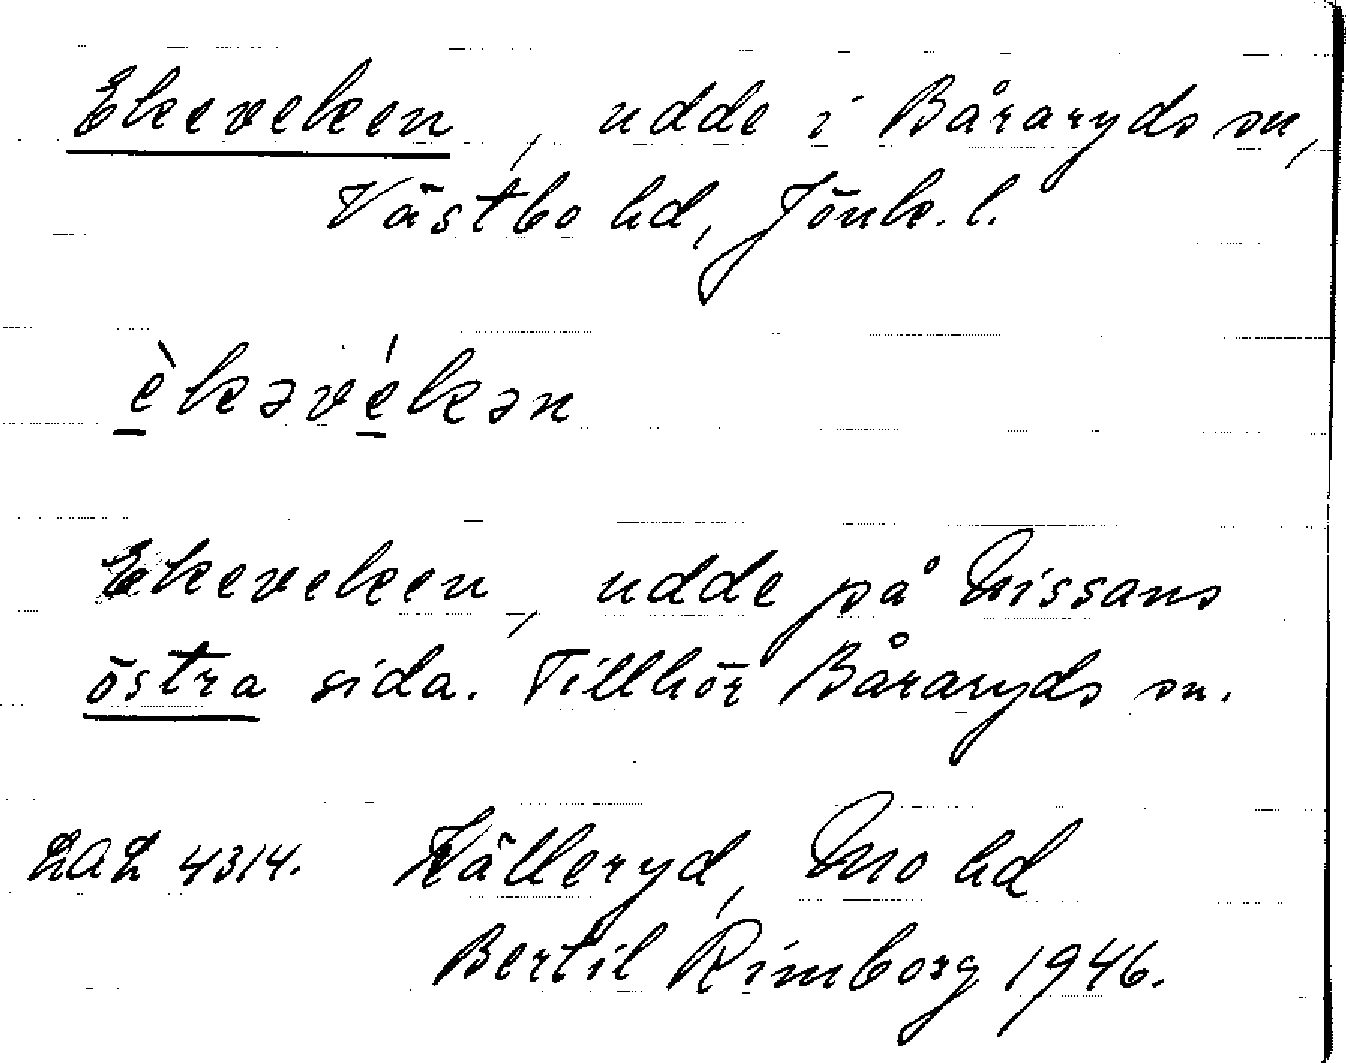 Ekeveken, udde i Båraryds sn,
Västbo hd, Jönk. l.
è̱kəvé̱kən
Ekeveken, udde på Nissans
östra sida. Tillhör Båraryds sn.
LAL 4314. Källeryd, Mo hd
Bertil Rimborg 1946.